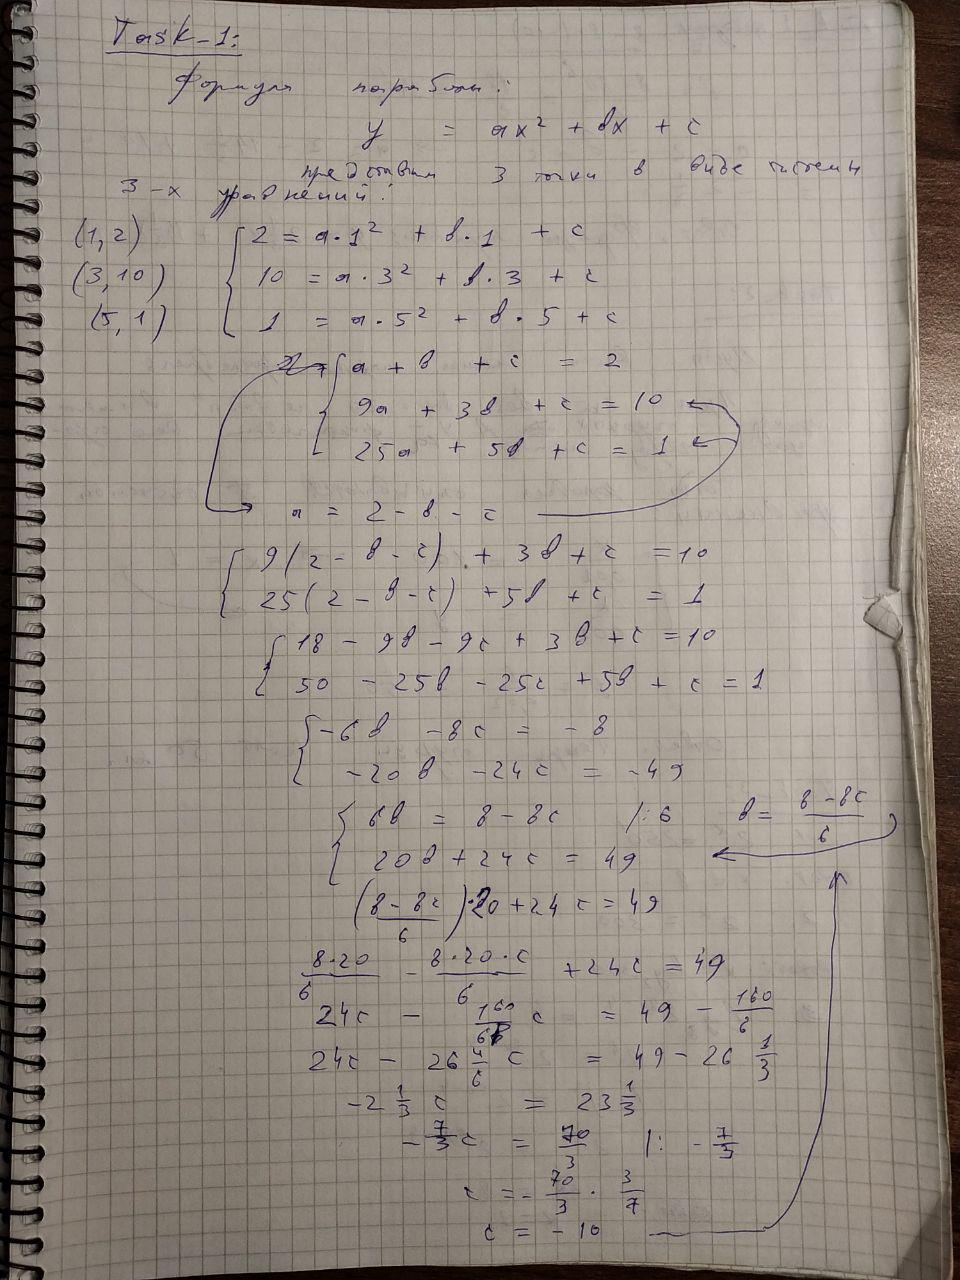 Task-1:
Формула параболы:
y = ax² + bx + c
представим 3 точки в виде системы
3-х уравнений:
(1,2) { 2 = a·1² + b·1 + c
(3,10) 10 = a·3² + b·3 + c
(5,1) 1 = a·5² + b·5 + c
{ a + b + c = 2
9a + 3b + c = 10
25a + 5b + c = 1
a = 2 - b - c
{ 9(2 - b - c) + 3b + c = 10
25(2 - b - c) + 5b + c = 1
{ 18 - 9b - 9c + 3b + c = 10
50 - 25b - 25c + 5b + c = 1
{ -6b - 8c = -8
-20b - 24c = -49
{ 6b = 8 - 8c /:6 b = (8 - 8c)/6
20b + 24c = 49
((8 - 8c)/6)·20 + 24c = 49
8·20/6 - 8·20·c/6 + 24c = 49
24c - 160/6 c = 49 - 160/6
24c - 26 4/6 c = 49 - 26 1/3
-2 1/3 c = 23 1/3
-7/3 c = 70/3 |: -7/3
c = -70/3 · 3/7
c = -10